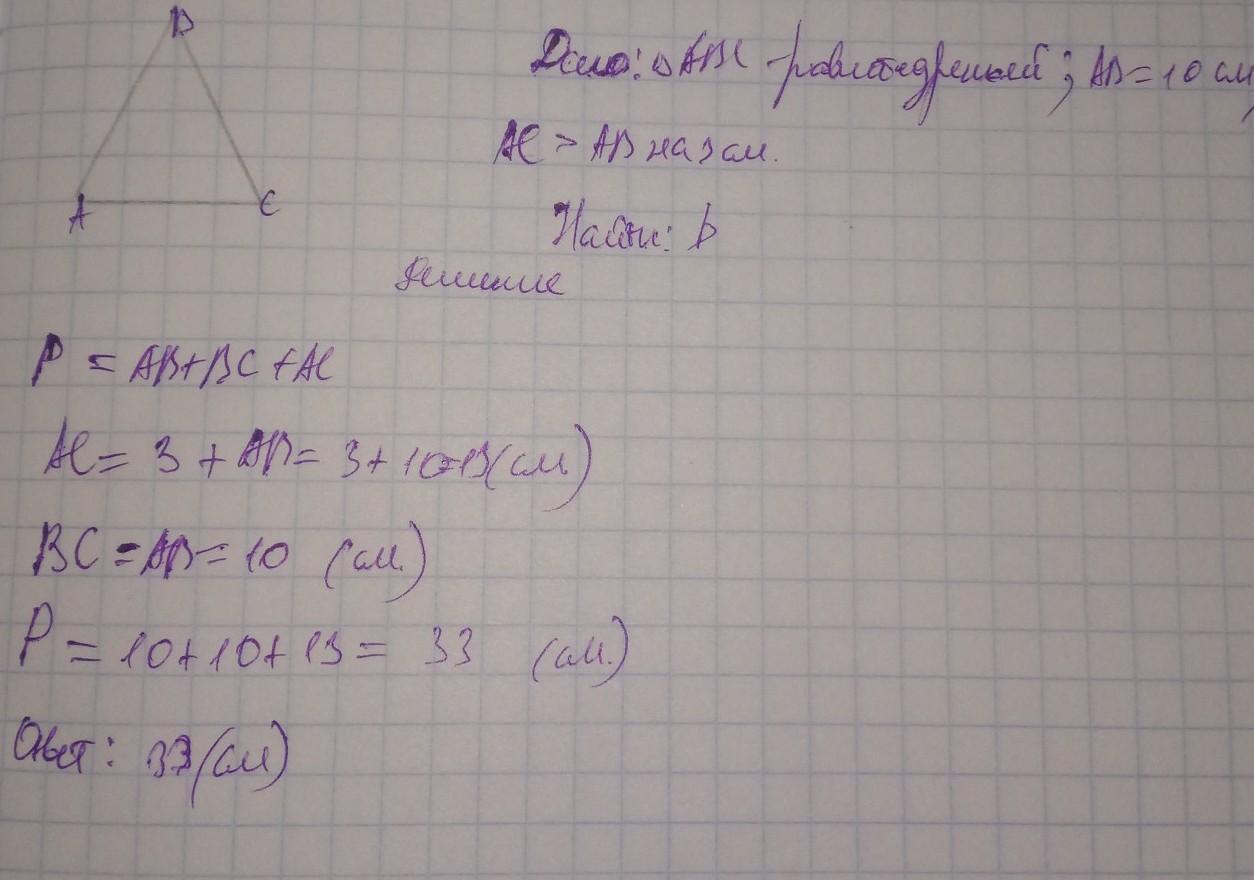 B
A
C
Дано: △ABC - равнобедренный; AB = 10 см,
AC > AB на 3 см.
Найти: P
Решение
P = AB + BC + AC
AC = 3 + AB = 3 + 10 = 13 (см.)
BC = AB = 10 (см.)
P = 10 + 10 + 13 = 33 (см.)
Ответ: 33 (см)